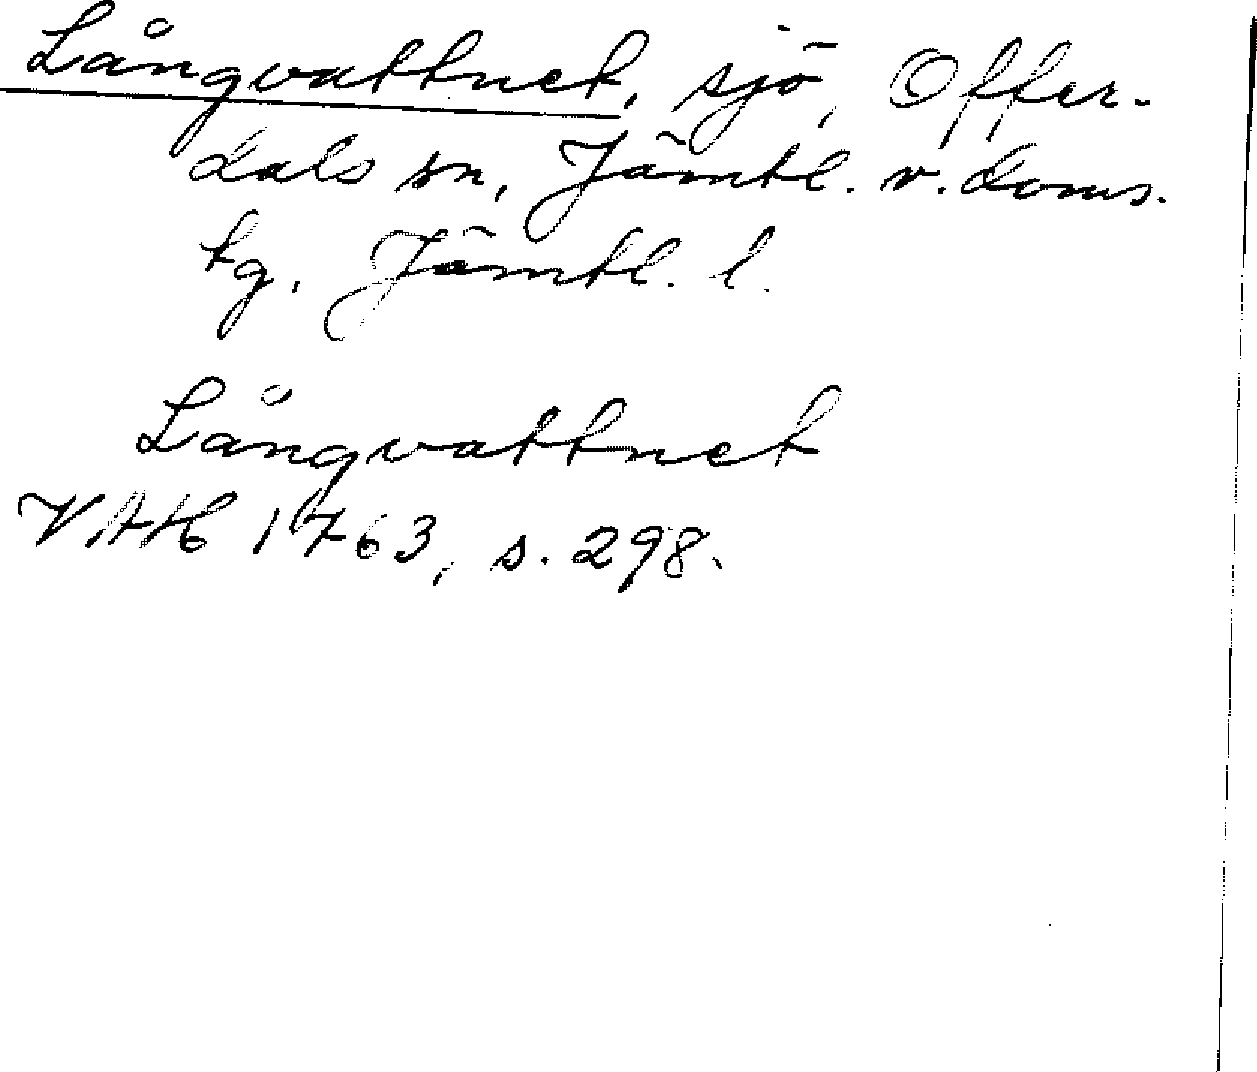 Långvattnet, sjö, Offer-
dals sn, Jämtl. v. doms.
tg. Jämtl. l.
Långvattnet
VAH 1763, s. 298.